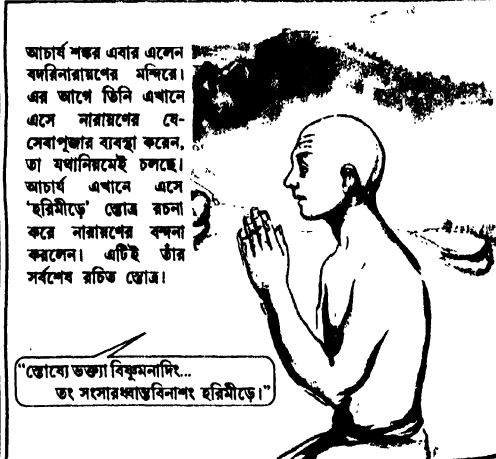 আচার্য শঙ্কর এবার এলেন
বদরিনারায়ণের মন্দিরে।
এর আগে তিনি এখানে
এসে নারায়ণের যে-
সেবাপূজার ব্যবস্থা করেন,
তা যথানিয়মেই চলছে।
আচার্য এখানে এসে
‘হরিমীড়ে’ স্তোত্র রচনা
করে নারায়ণের বন্দনা
করলেন। এটিই তাঁর
সর্বশেষ রচিত স্তোত্র।
“স্তোষ্যে ভক্ত্যা বিষ্ণুমনাদিং...
তং সংসারধ্বান্তবিনাশং হরিমীড়ে।”